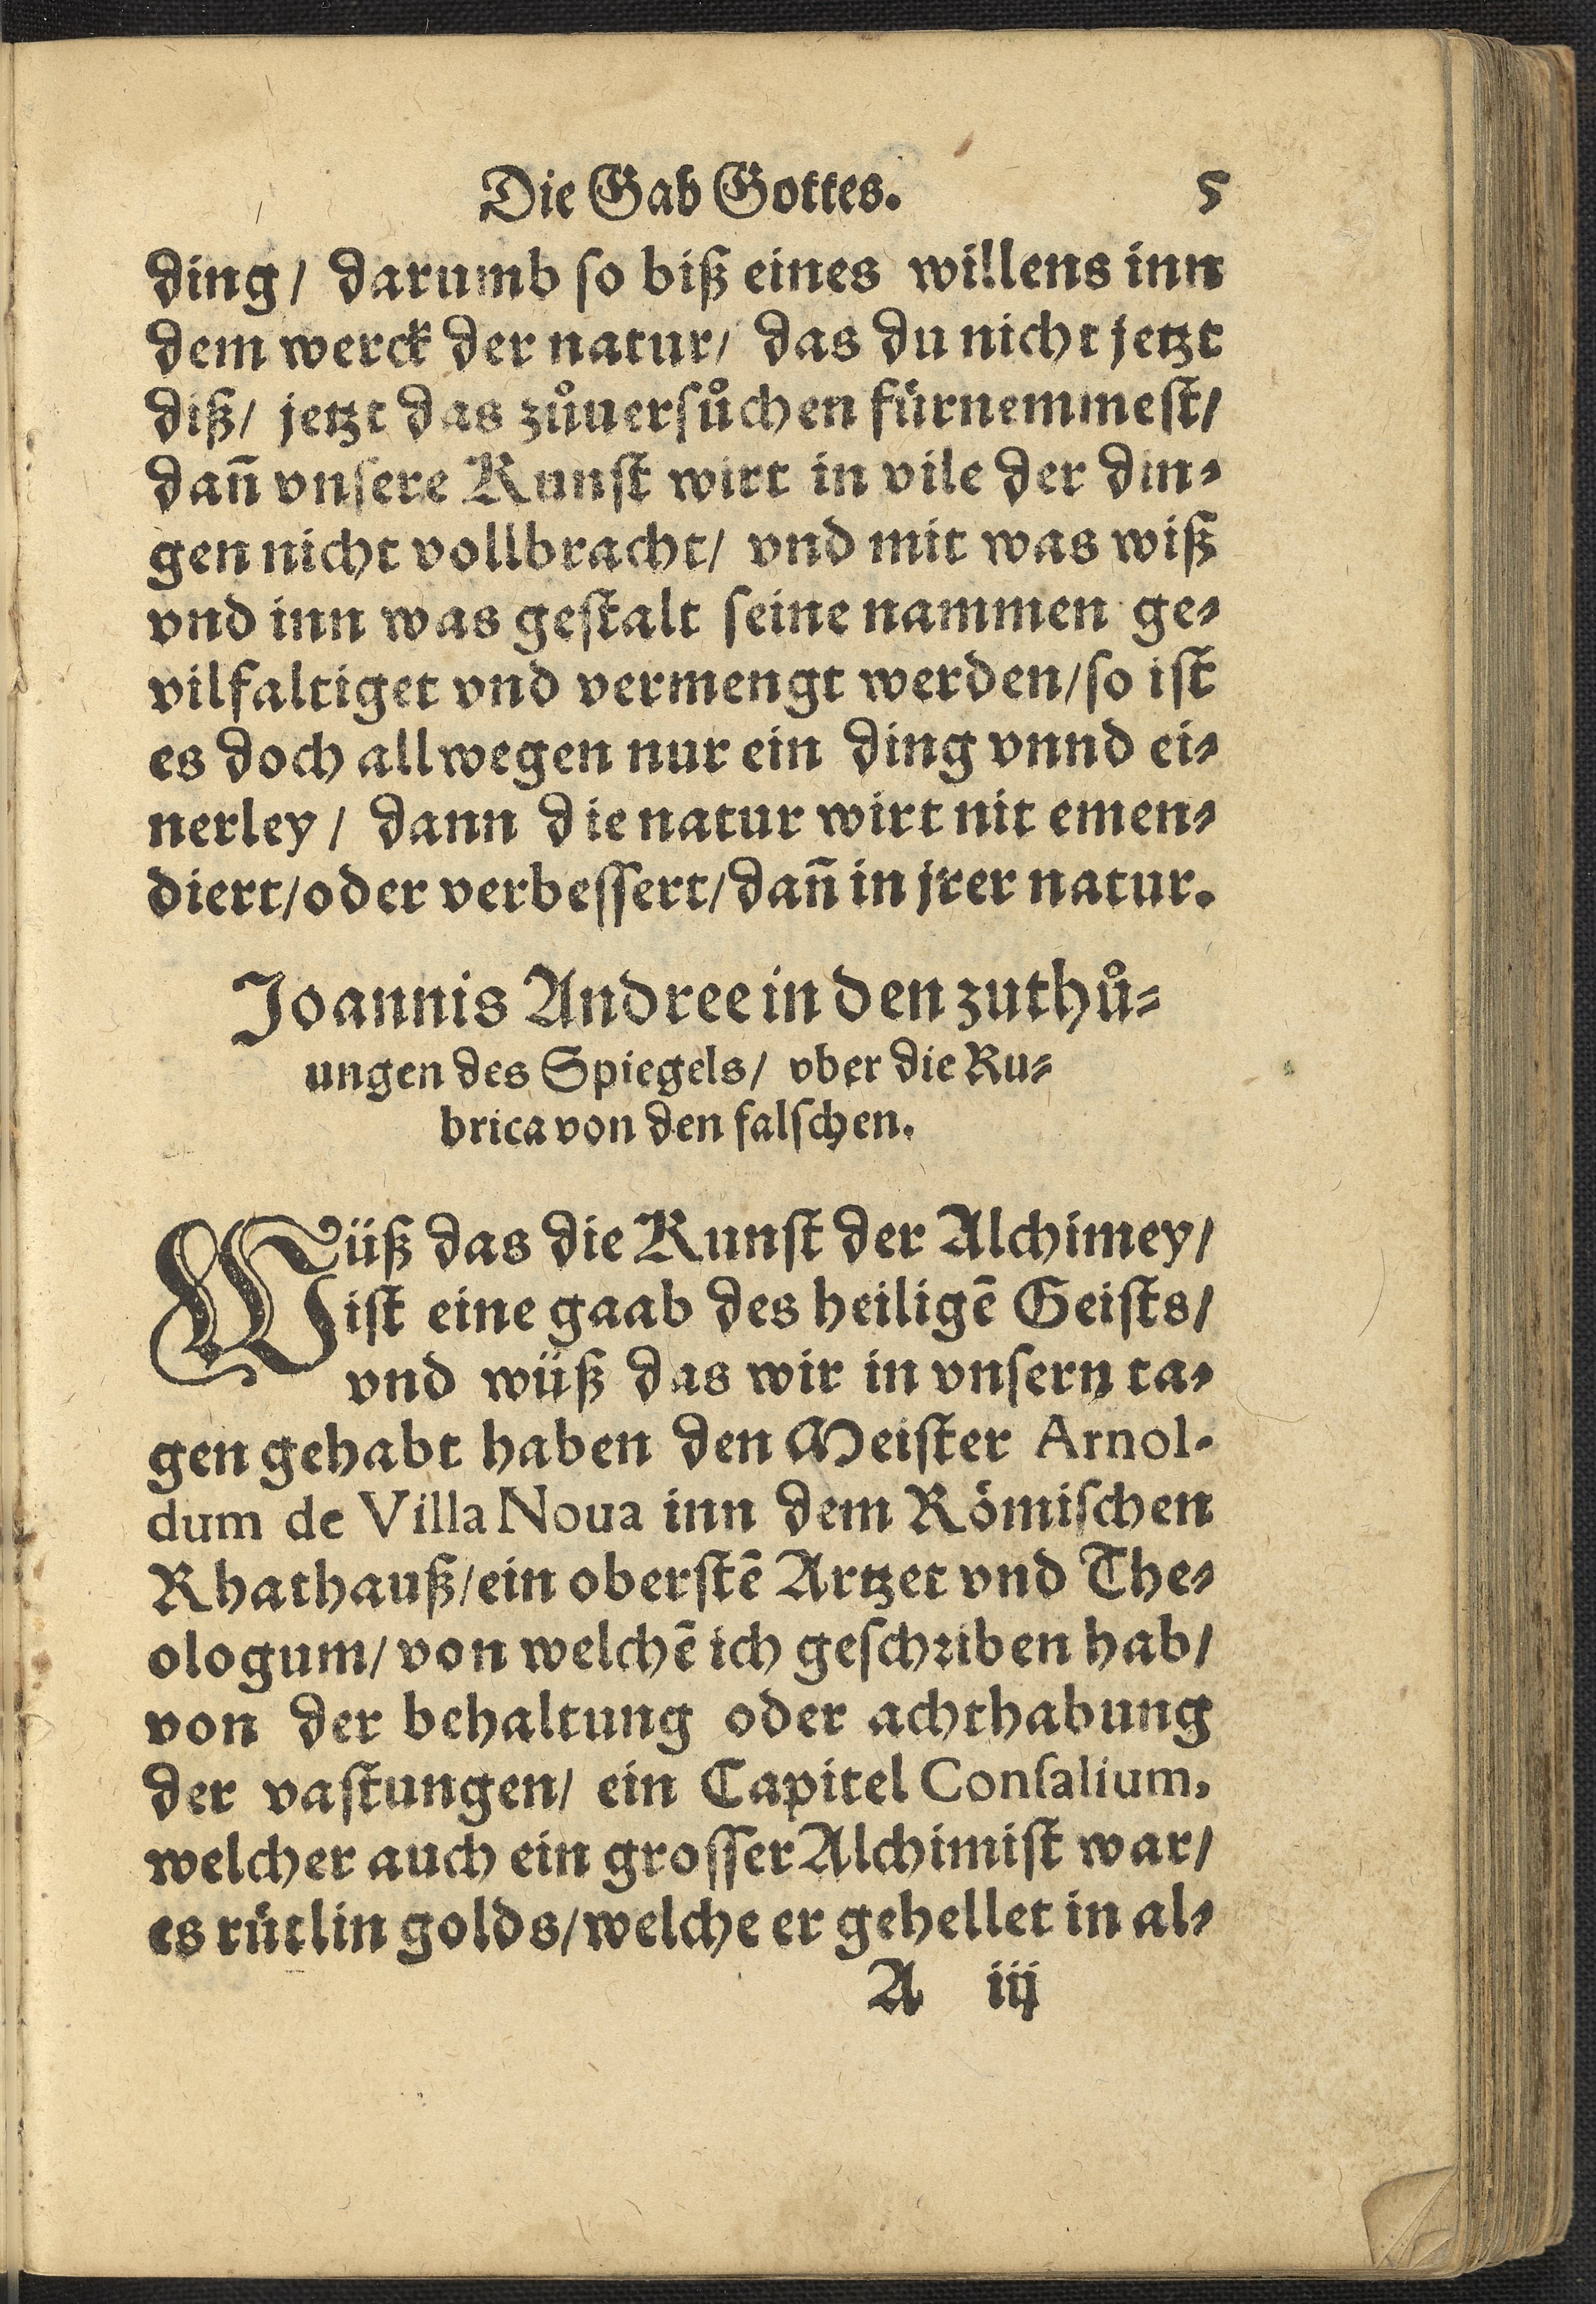 Die Gab Gottes. 5
ding/ darumb so biß eines willens inn
dem werck der natur/ das du nicht jetzt
diß/ jetzt das zůuersůchen fürnemmest/
dañ vnsere Kunst wirt in vile der din⸗
gen nicht vollbracht/ vnd mit was wiß
vnd inn was gestalt seine nammen ge⸗
vilfaltiget vnd vermengt werden/so ist
es doch allwegen nur ein ding vnnd ei⸗
nerley/ dann die natur wirt nit emen⸗
diert/oder verbessert/dañ in jrer natur.
Joannis Andree in den zuthů⸗
ungen des Spiegels/ vber die Ru⸗
brica von den falschen.
Wüß das die Kunst der Alchimey/
ist eine gaab des heiligē Geists/
vnd wüß das wir in vnsern ta⸗
gen gehabt haben den Meister Arnol-
dum de Villa Noua inn dem Römischen
Rhathauß/ein oberstē Artzet vnd The⸗
ologum/von welchē ich geschriben hab/
von der behaltung oder achthabung
der vastungen/ ein Capitel Consalium,
welcher auch ein grosser Alchimist war/
es rütlin golds/welche er gehellet in al⸗
A iij